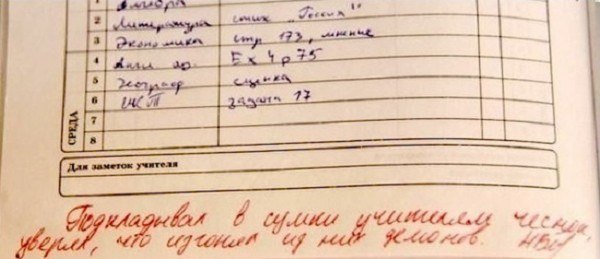 1 Алгебра
2 Литература стих "Госких"
3 Экономика стр 173, мнение
4 Англ яз. Ex 4 p 75
5 Географ сценка
6 ИКТ задача 17
7
8
СРЕДА
Для заметок учителя
Подкладывал в сумки учителям чеснок,
уверяя, что изгоняет из них демонов.